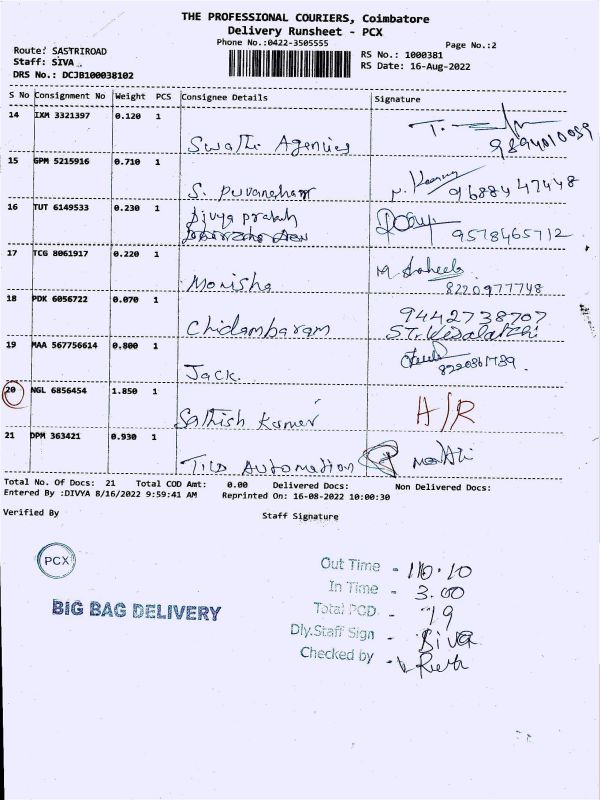 THE PROFESSIONAL COURIERS, Coimbatore
Delivery Runsheet - PCX
Phone No.:0422-3505555
Page No.:2
Route: SASTRIROAD
RS No.: 1000381
Staff: SIVA
RS Date: 16-Aug-2022
DRS No.: DCJB100038102
S No Consignment No Weight PCS Consignee Details Signature
14 IXM 3321397 0.120 1
Swathi Agencies 9894010059
15 GPM 5215916 0.710 1
S. Puvaneshwar 9688447448
16 TUT 6149533 0.230 1
Divya prakash
9578465712
17 TCG 8061917 0.220 1
Monisha 8220977748
18 PDK 6056722 0.070 1
9442738707
Chidambaram ST. Visalatchi
19 MAA 567756614 0.800 1
Jack.
20 NGL 6856454 1.850 1
Sathish Kumar A/R
21 DPM 363421 0.930 1
Automation Malathi
Total No. Of Docs: 21 Total COD Amt: 0.00 Delivered Docs: Non Delivered Docs:
Entered By :DIVYA 8/16/2022 9:59:41 AM Reprinted On: 16-08-2022 10:00:30
Verified By Staff Signature
PCX
BIG BAG DELIVERY
Out Time - 10.10
In Time - 3.00
Total POD - 19
Dly.Staff Sign - Siva
Checked by -